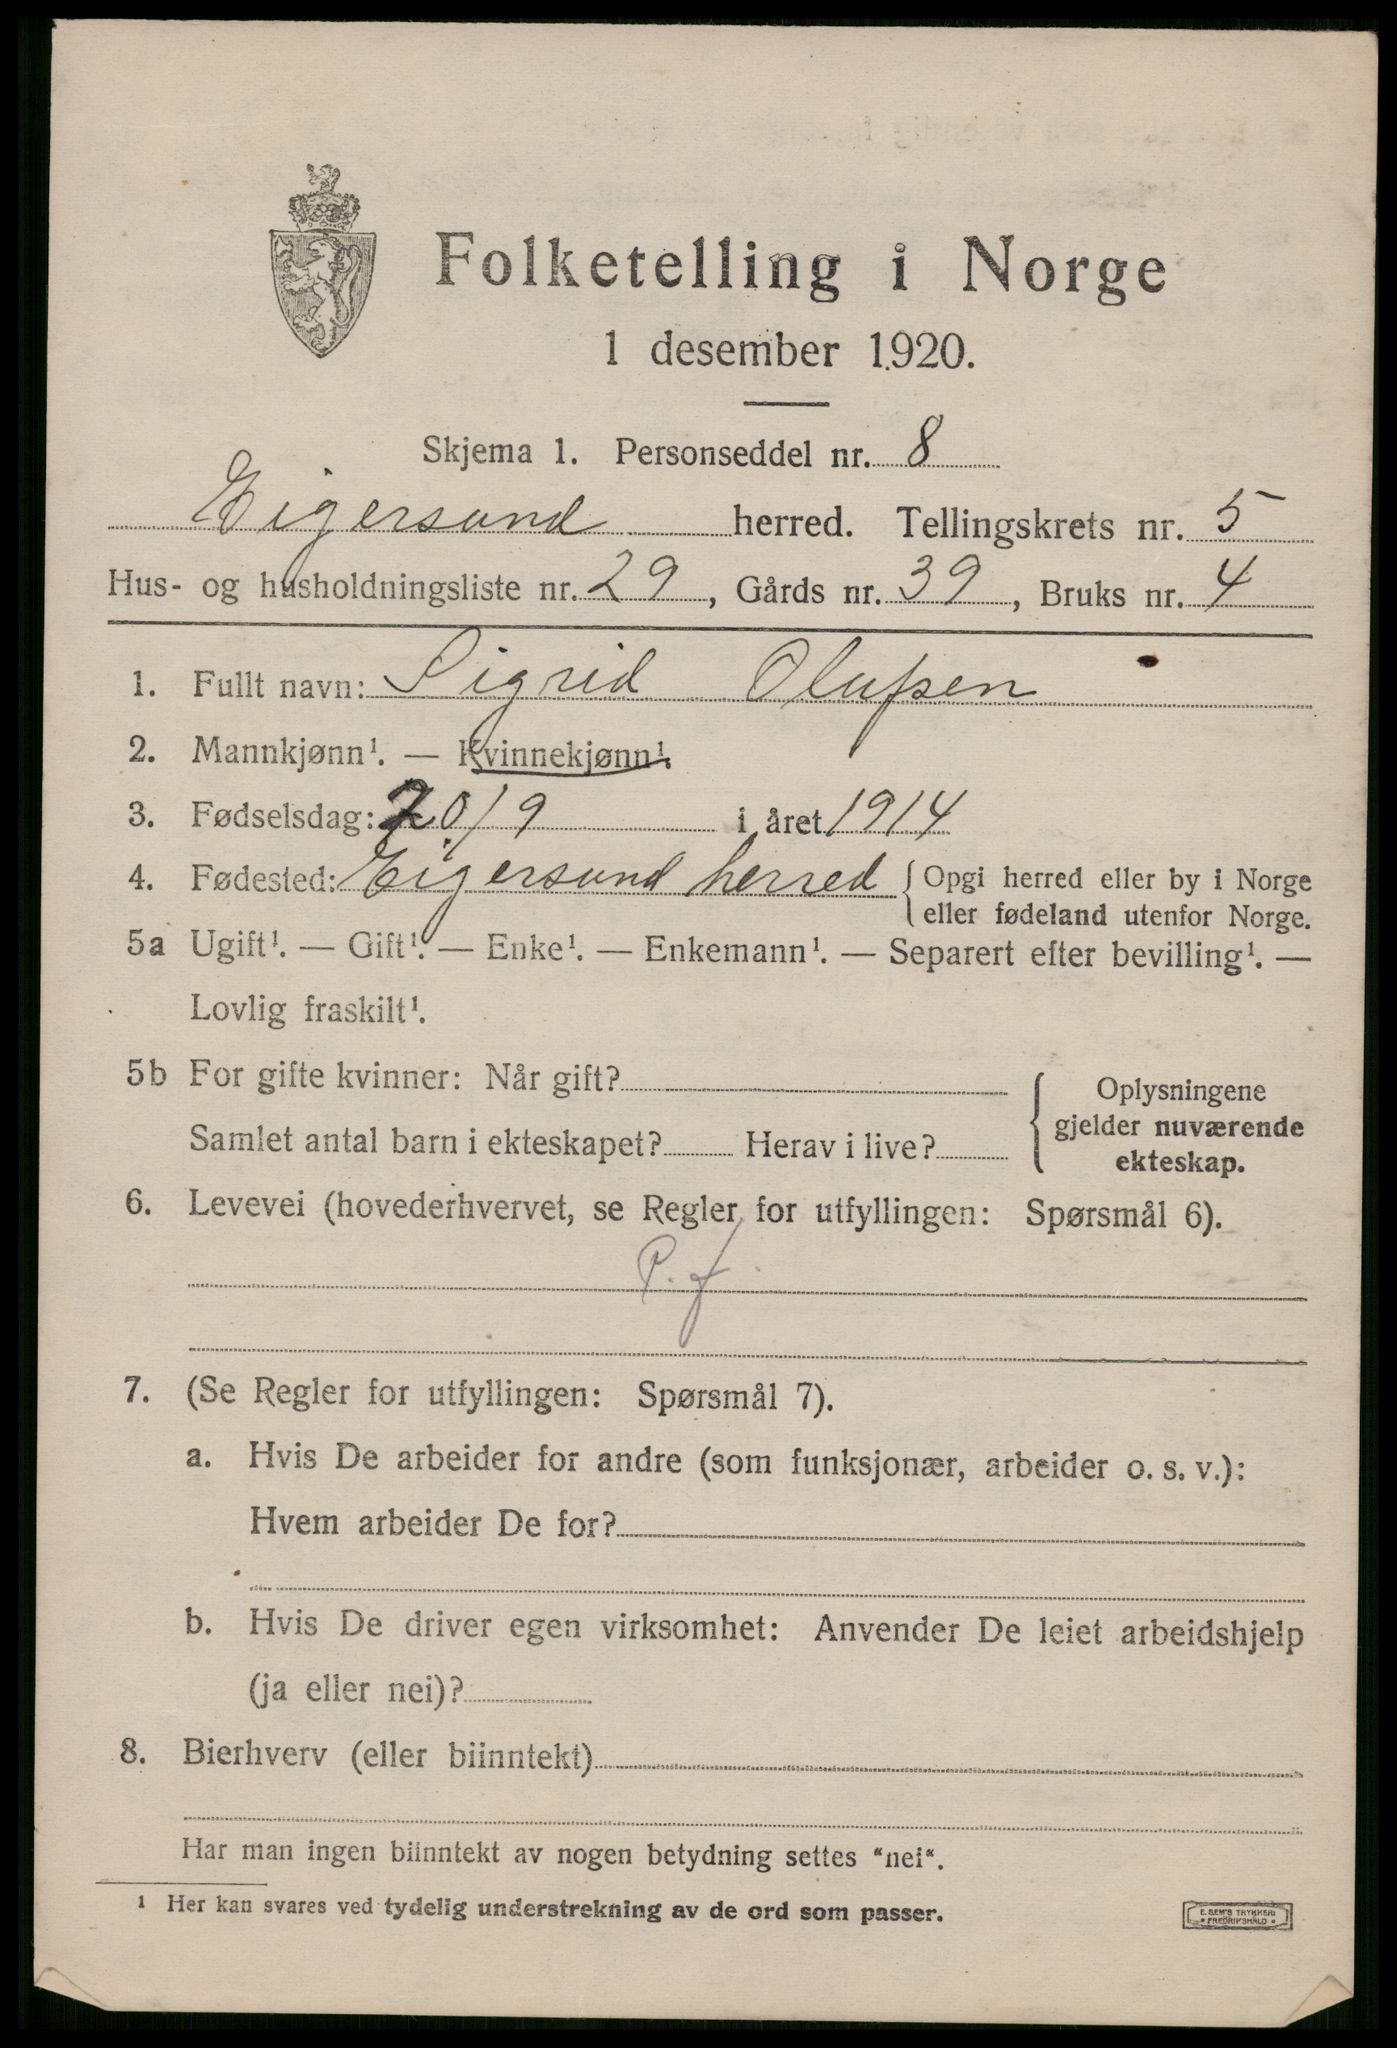 Folketelling i Norge
1 desember 1920.
Skjema 1. Personseddel nr. 8
Eigersund herred. Tellingskrets nr. 5
Hus- og husholdningsliste nr. 29, Gårds nr. 39, Bruks nr. 4
1. Fullt navn: Sigrid Olufsen
2. Mannkjønn¹. — Kvinnekjønn¹.
3. Fødselsdag: 20/9 i året 1914
4. Fødested: Eigersund herred { Opgi herred eller by i Norge
eller fødeland utenfor Norge.
5a Ugift¹. — Gift¹. — Enke¹. — Enkemann¹. — Separert efter bevilling¹. —
Lovlig fraskilt¹.
5b For gifte kvinner: Når gift?
Samlet antal barn i ekteskapet? Herav i live?
Oplysningene
gjelder nuværende
ekteskap.
6. Levevei (hovederhvervet, se Regler for utfyllingen: Spørsmål 6).
P. f
7. (Se Regler for utfyllingen: Spørsmål 7).
a. Hvis De arbeider for andre (som funksjonær, arbeider o. s. v.):
Hvem arbeider De for?
b. Hvis De driver egen virksomhet: Anvender De leiet arbeidshjelp
(ja eller nei)?
8. Bierhverv (eller biinntekt)
Har man ingen biinntekt av nogen betydning settes "nei".
¹ Her kan svares ved tydelig understrekning av de ord som passer.
E. SEM'S TRYKKERI
FREDRIKSHALD